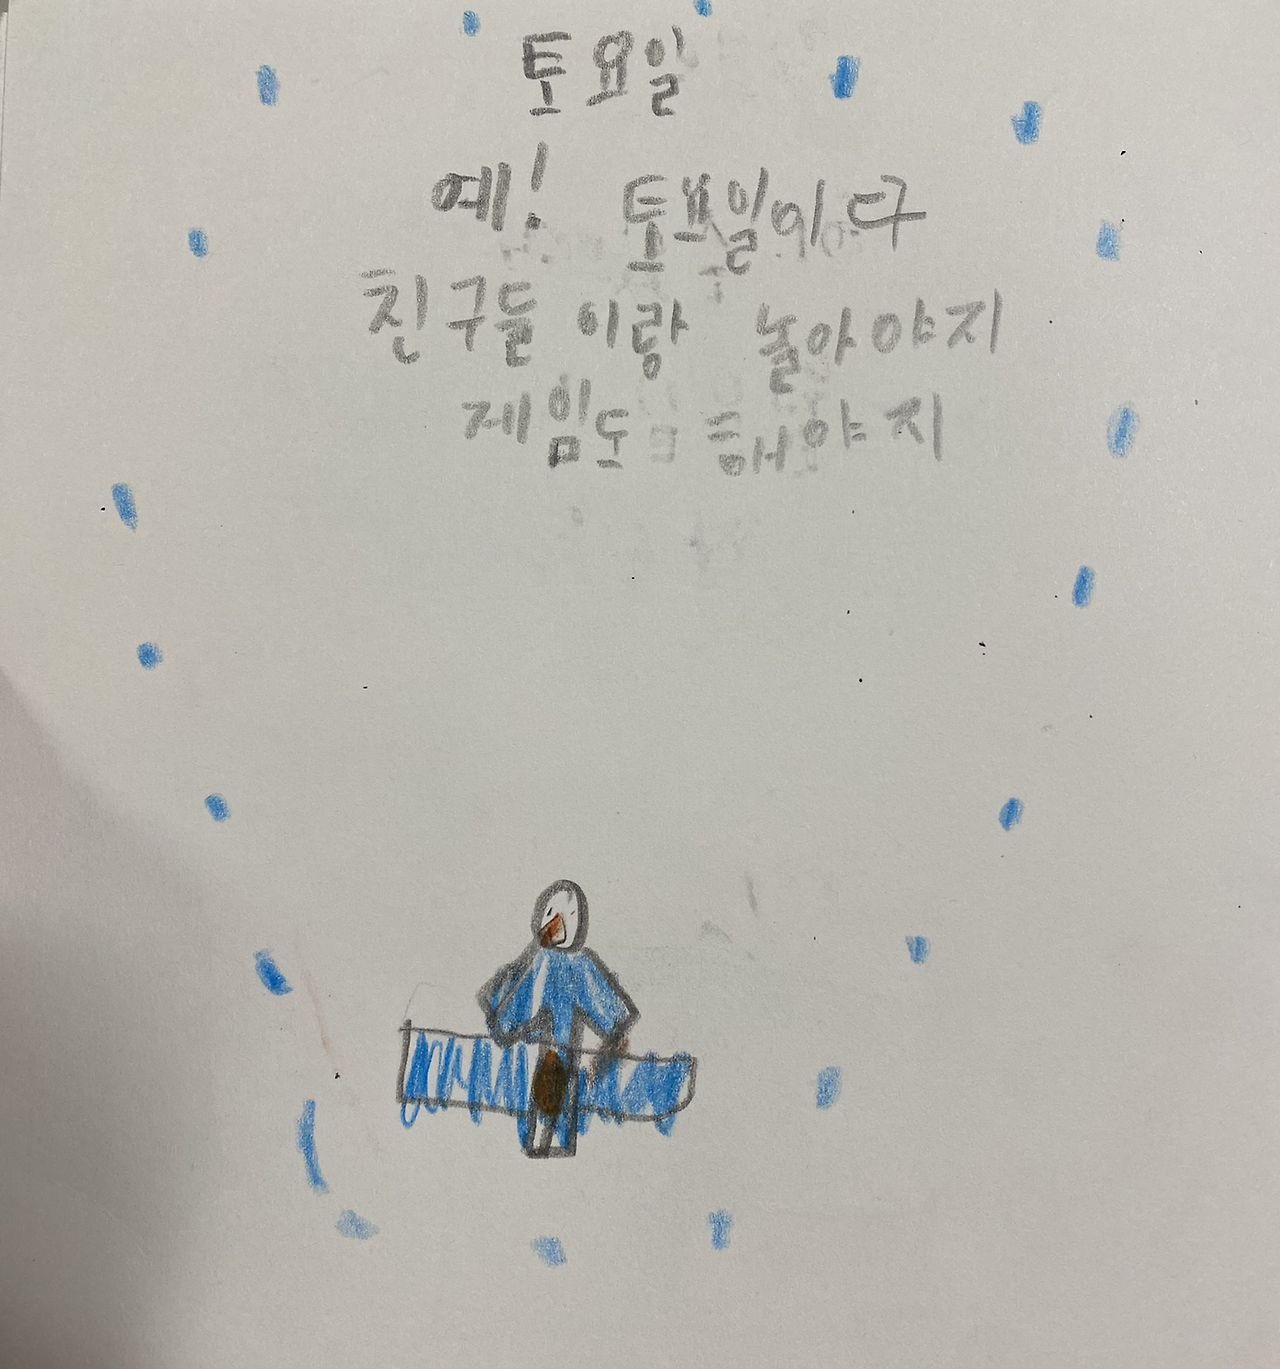 토요일
예! 토요일이다
친구들 이랑 놀아야지
제임도 해야지